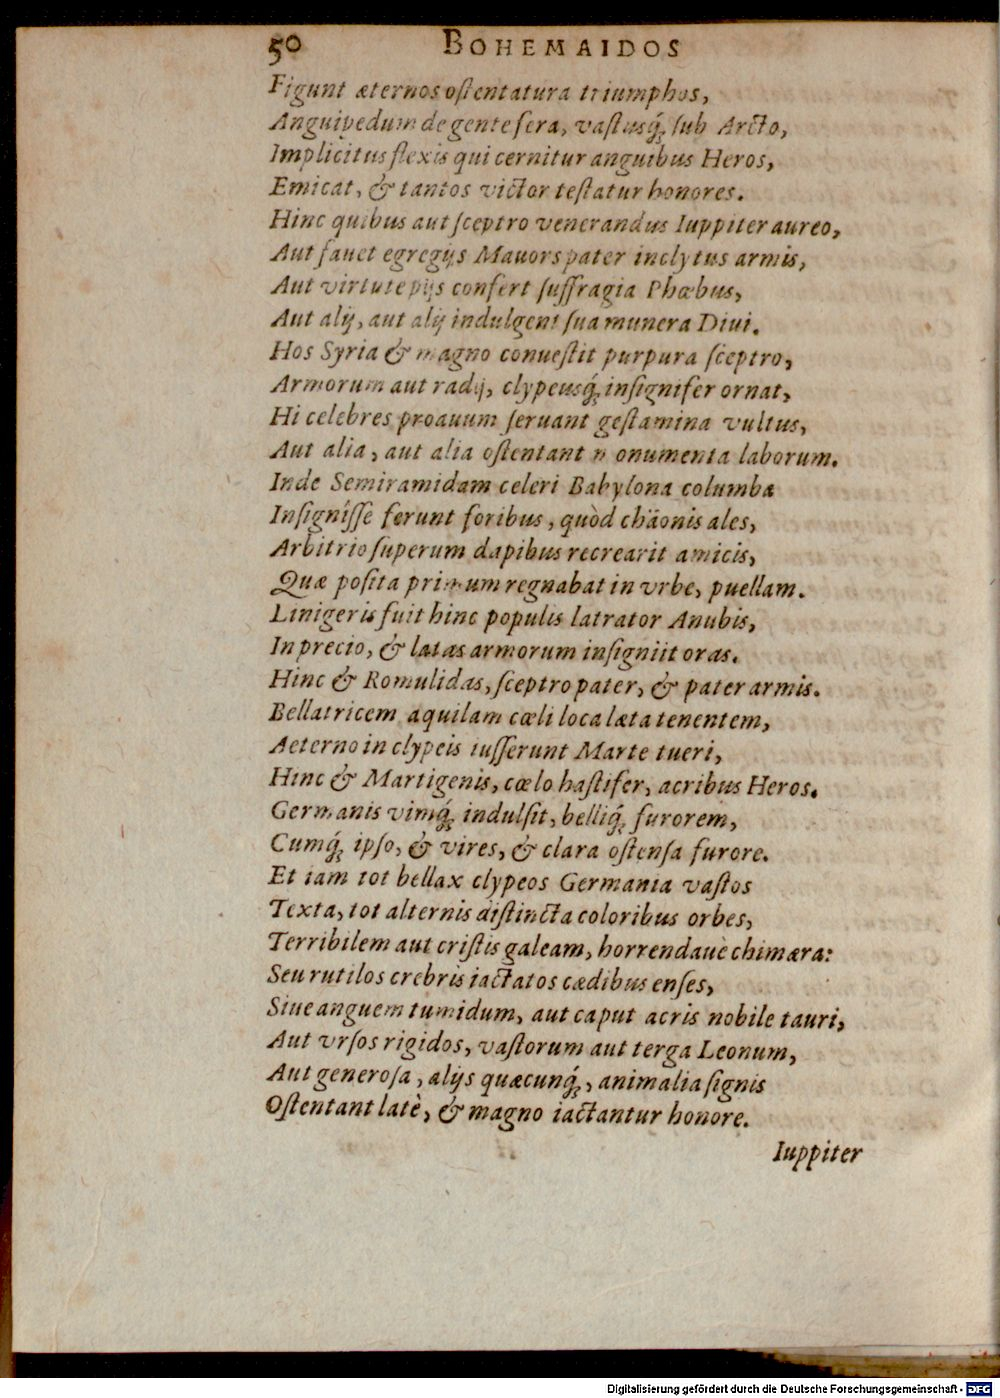 50 BOHEMAIDOS
Figunt æternos oſtentatura triumphos,
Anguipedum de gente fera, vaſtusq́ ſub Arcto,
Implicitus flexis qui cernitur anguibus Heros,
Emicat, & tantos victor teſtatur honores.
Hinc quibus aut ſceptro venerandus Iuppiter aureo,
Aut fauet egregijs Mauors pater inclytus armis,
Aut virtute pijs confert ſuffragia Phœbus,
Aut alij, aut alij indulgent ſua munera Diui.
Hos Syria & magno conueſtit purpura ſceptro,
Armorum aut radij, clypeusq́ inſignifer ornat,
Hi celebres proauum ſeruant geſtamina vultus,
Aut alia, aut alia oſtentant monumenta laborum.
Inde Semiramidam celeri Babylona columba
Inſigniſſe ferunt foribus, quòd chäonis ales,
Arbitrio ſuperum dapibus recrearit amicis,
Quæ poſita primum regnabat in vrbe, puellam.
Linigeris fuit hinc populis latrator Anubis,
In precio, & latas armorum inſigniit oras.
Hinc & Romulidas, ſceptro pater, & pater armis.
Bellatricem aquilam cœli loca læta tenentem,
Aeterno in clypeis iuſſerunt Marte tueri,
Hinc & Martigenis, cœlo haſtifer, acribus Heros.
Germanis vimq́ indulſit, belliq́ furorem,
Cumq́ ipſo, & vires, & clara oſtenſa furore.
Et iam tot bellax clypeos Germania vaſtos
Texta, tot alternis diſtincta coloribus orbes,
Terribilem aut criſtis galeam, horrendauè chimæra:
Seu rutilos crebris iactatos cædibus enſes,
Siue anguem tumidum, aut caput acris nobile tauri,
Aut vrſos rigidos, vaſtorum aut terga Leonum,
Aut generoſa, alijs quæcunq́, animalia ſignis
Oſtentant latè, & magno iactantur honore.
Iuppiter
Digitalisierung gefördert durch die Deutsche Forschungsgemeinschaft - DFG